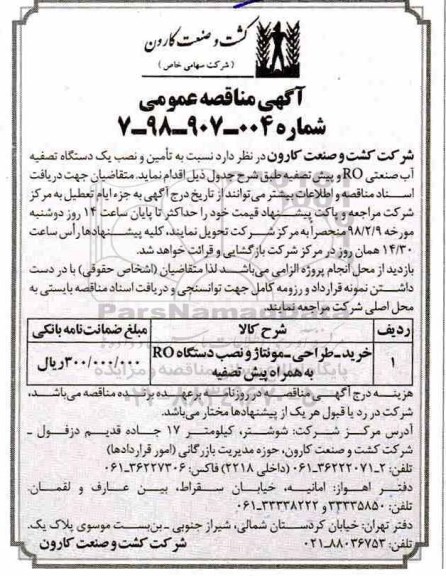 کشت و صنعت کارون
( شرکت سهامی خاص )
آگهی مناقصه عمومی
شماره ۰۰۴-۹۰۷-۹۸-۷
شرکت کشت و صنعت کارون در نظر دارد نسبت به تأمین و نصب یک دستگاه تصفیه
آب صنعتی RO و پیش تصفیه طبق شرح جدول ذیل اقدام نماید. متقاضیان جهت دریافت
اسناد مناقصه و اطلاعات بیشتر می‌توانند از تاریخ درج آگهی به جزء ایام تعطیل به مرکز
شرکت مراجعه و پاکت پیشنهاد قیمت خود را حداکثر تا پایان ساعت ۱۴ روز دوشنبه
مورخه ۹۸/۲/۹ منحصراً به مرکز شرکت تحویل نمایند، کلیه پیشنهادها رأس ساعت
۱۴/۳۰ همان روز در مرکز شرکت بازگشایی و قرائت خواهد شد.
بازدید از محل انجام پروژه الزامی می‌باشد لذا متقاضیان (اشخاص حقوقی) با در دست
داشتن نمونه قرارداد و رزومه کامل جهت توانسنجی و دریافت اسناد مناقصه بایستی به
محل اصلی شرکت مراجعه نمایند.
ردیف شرح کالا مبلغ ضمانت‌نامه بانکی
۱ خرید-طراحی-مونتاژ و نصب دستگاه RO به همراه پیش تصفیه ۳۰۰/۰۰۰/۰۰۰ ریال
هزینه درج آگهی مناقصه در روزنامه برعهده برنده مناقصه می‌باشد،
شرکت در رد یا قبول هر یک از پیشنهادها مختار می‌باشد.
آدرس مرکز شرکت: شوشتر، کیلومتر ۱۷ جاده قدیم دزفول -
شرکت کشت و صنعت کارون، حوزه مدیریت بازرگانی (امور قراردادها)
تلفن: ۲-۳۶۲۲۲۰۷۱-۰۶۱ (داخلی ۲۲۱۸) فاکس: ۳۶۲۲۷۳۰۶-۰۶۱
دفتر اهواز: امانیه، خیابان سقراط، بین عارف و لقمان.
تلفن: ۳۳۳۳۵۸۵۰ و ۳۳۳۳۸۲۲۲-۰۶۱
دفتر تهران: خیابان کردستان شمالی، شیراز جنوبی - بن‌بست موسوی پلاک یک.
تلفن: ۸۸۰۳۶۷۵۳-۰۲۱ شرکت کشت و صنعت کارون